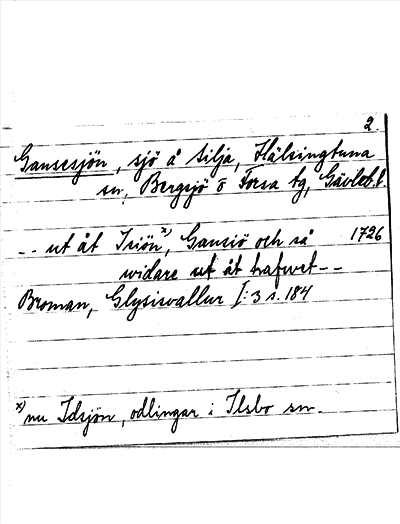 2.
Gansesjön, sjö å Silja, Hälsingtuna
sn, Bergsjö o Forsa tg, Gävleb. l.
-- ut åt Isiön x), Gansiö och så 1726
widare ut åt hafwet--
Broman, Glysisvallur I:3 s. 184
x) nu Idsjön, odlingar i Ilsbo sn.